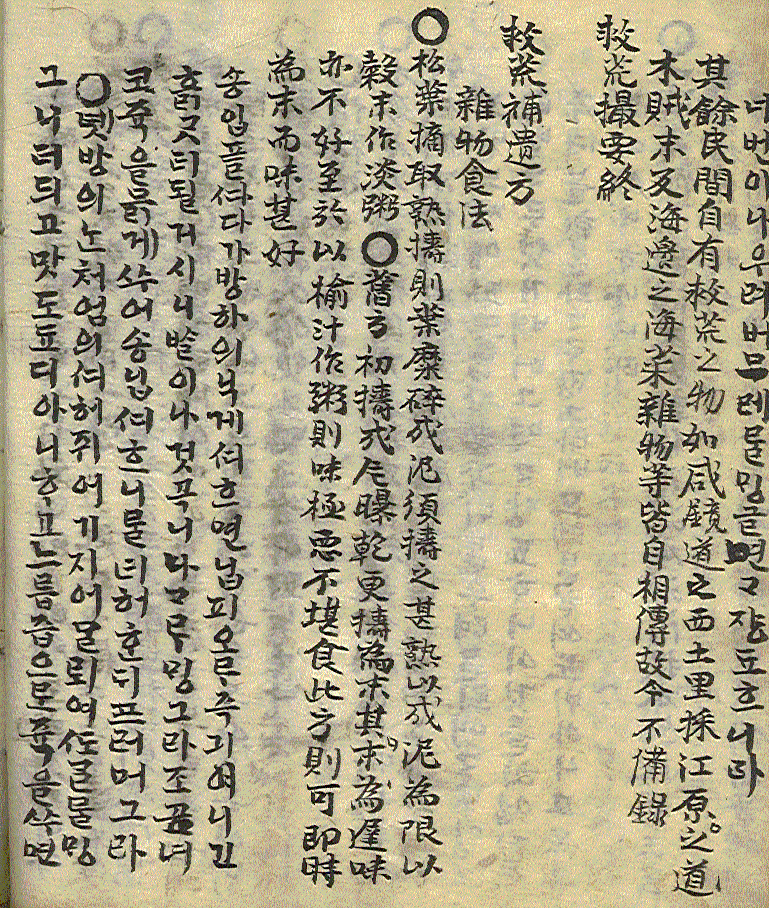 너번이나우려버므레ᄃᆞᆯᄆᆡᆼ글면ᄀᆞ쟝됴흐니라
其餘民間自有救荒之物如咸鏡道之西土里採江原之道
木賊末及海邊之海菜雜物等皆自相傳故今不備錄
救荒撮要終
救荒補遺方
雜物食法
○松葉摘取熟擣則葉糜碎成泥須擣之甚熟以成泥爲限以
穀末作淡粥○舊方初擣成片曝乾更擣爲末其末爲遲味
亦不好至於以楡汁作粥則味極惡不堪食此方則可即時
爲末而味甚好
송입플ᄯᅡ다가방하의닉게ᄯᅵ흐면닙피오ᄅᆞ주긔여니긴
ᄒᆞᆰᄀᆞᆺ티될거시니ᄡᆞᆯ이나것포니나ᄀᆞᄅᆞᄆᆡᆼ그라조곰녀
코쥭을믉게ᄡᅮ어송닙ᄯᅵ흐니ᄅᆞᆯ틔허ᄒᆞᆫᄃᆡ프러머그라
○녯방의ᄂᆞᆫ처엄의ᄯᅵ허쥐어기지어ᄆᆞᆯ뢰여ᄯᅩᄀᆞᄅᆞᄆᆡᆼ
그니터듸고맛도됴디아니ᄒᆞ고느릅즙으로쥭을ᄡᅮ면